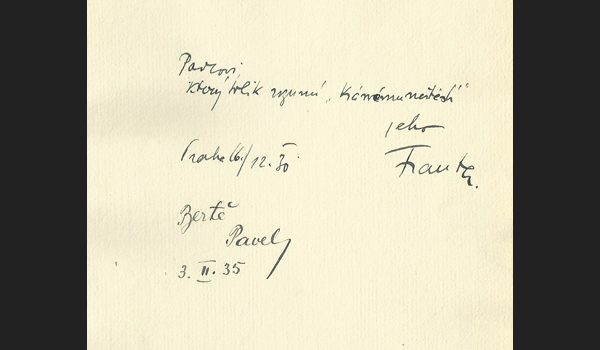 Pavlovi,
který tolik rozumí „Krásnému neštěstí“
jeho
Praha 16/12.30
Frantz.
Bertě
Pavel
3. II. 35